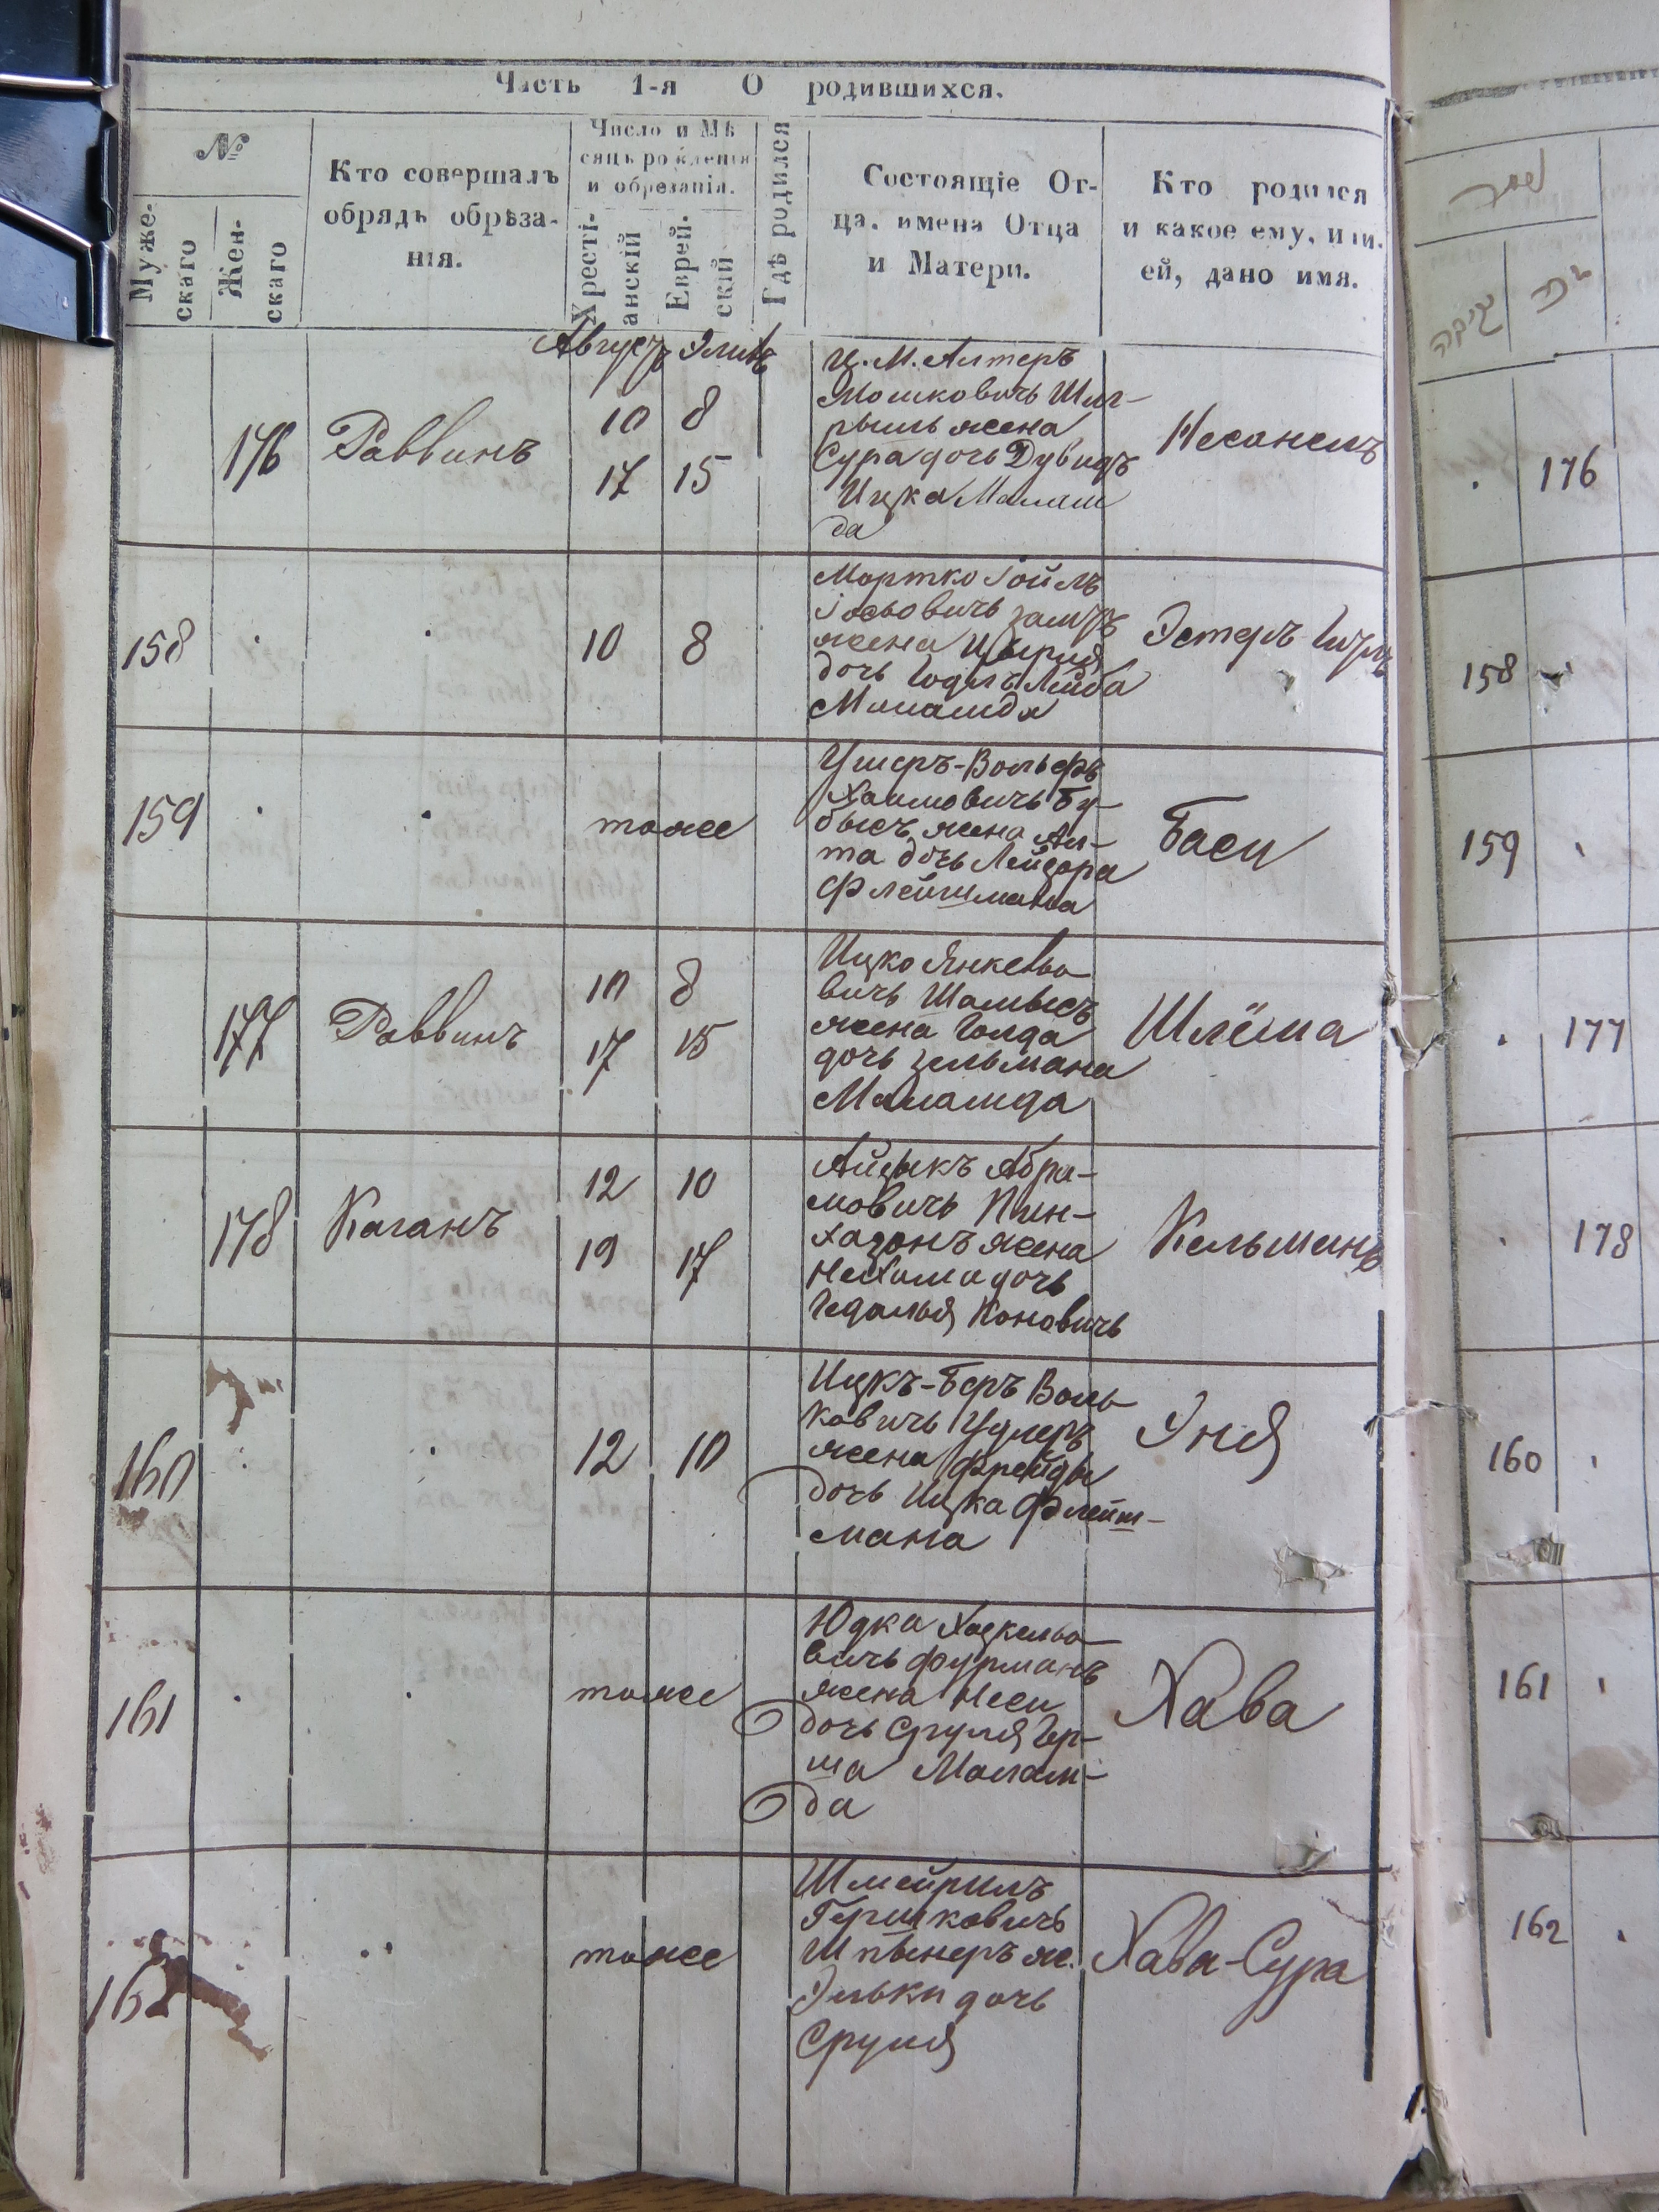 Часть 1-я О родившихся.
№
Муже-
скаго
Жен-
скаго
Кто совершалъ
обрядъ обрѣза-
нія.
Число и Мѣ
сяцъ рожденія
и обрезанія.
Хресті-
анскій
Еврей-
скій
Гдѣ родился
Состоящіе От-
ца, имена Отца
и Матери.
Кто родился
и какое ему, или
ей, дано имя.
Августъ
176
Раввинъ
10 8
17 15
И. М. Алтеръ
Мошковичь
жена
Сура дочь Дувидъ
Ицка Малам
да
176
158
10 8
Мортко Іойлъ
Іосьовичь
жена
дочь Лейба
Маламда
Эстеръ
158
159
тоже
Ушеръ-Вольфъ
Хаимовичь Бу-
жена Ал-
та дочь Лейзора
Флейшмана
Баси
159
177
Раввинъ
10 8
17 15
Ицко Янкельо
вичь
жена Голда
дочь Зельмана
Маламда
Шлёма
177
178
Каганъ
12 10
19 17
Айзыкъ Абра-
мовичь Пин-
хазонъ жена
Нехама дочь
Гедалья Коновичь
Кельманъ
178
160
12 10
Ицкъ-Беръ Воль
ковичь
жена Фрейды
дочь Ицка Флейш-
мана
Эня
160
161
тоже
Юдка Хацкельо
вичь Фурманъ
жена Неси
дочь Сруля Гер-
ша Малам-
да
Хава
161
162
тоже
Шмейрилъ
Гершковичь
ж.
Эльки дочь
Сруля
Хава-Сура
162